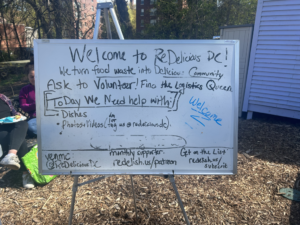 Welcome to ReDelicious DC!
We turn food waste into Delicious Community
Ask to Volunteer! Find the Logistics Queen
ToDay We Need help with:
Welcome
• Dishes
• Photos + Videos (tag us @redeliciousdc)
venmo
@ReDeliciousDC
monthly supporter
redelish.us/patreon
Get on the List
redelish.us/
subscribe